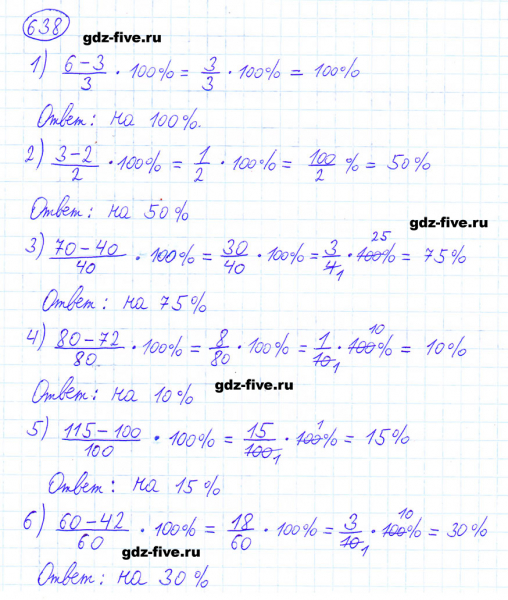 638
gdz-five.ru
1) (6-3)/3 · 100% = 3/3 · 100% = 100%
Ответ: на 100%.
2) (3-2)/2 · 100% = 1/2 · 100% = 100/2 % = 50%
Ответ: на 50%
gdz-five.ru
25
3) (70-40)/40 · 100% = 30/40 · 100% = 3/4 1 · 100% = 75%
Ответ: на 75%
10
4) (80-72)/80 · 100% = 8/80 · 100% = 1/10 1 · 100% = 10%
Ответ: на 10%
gdz-five.ru
1
5) (115-100)/100 · 100% = 15/100 1 · 100% = 15%
Ответ: на 15%
10
6) (60-42)/60 · 100% = 18/60 · 100% = 3/10 1 · 100% = 30%
gdz-five.ru
Ответ: на 30%